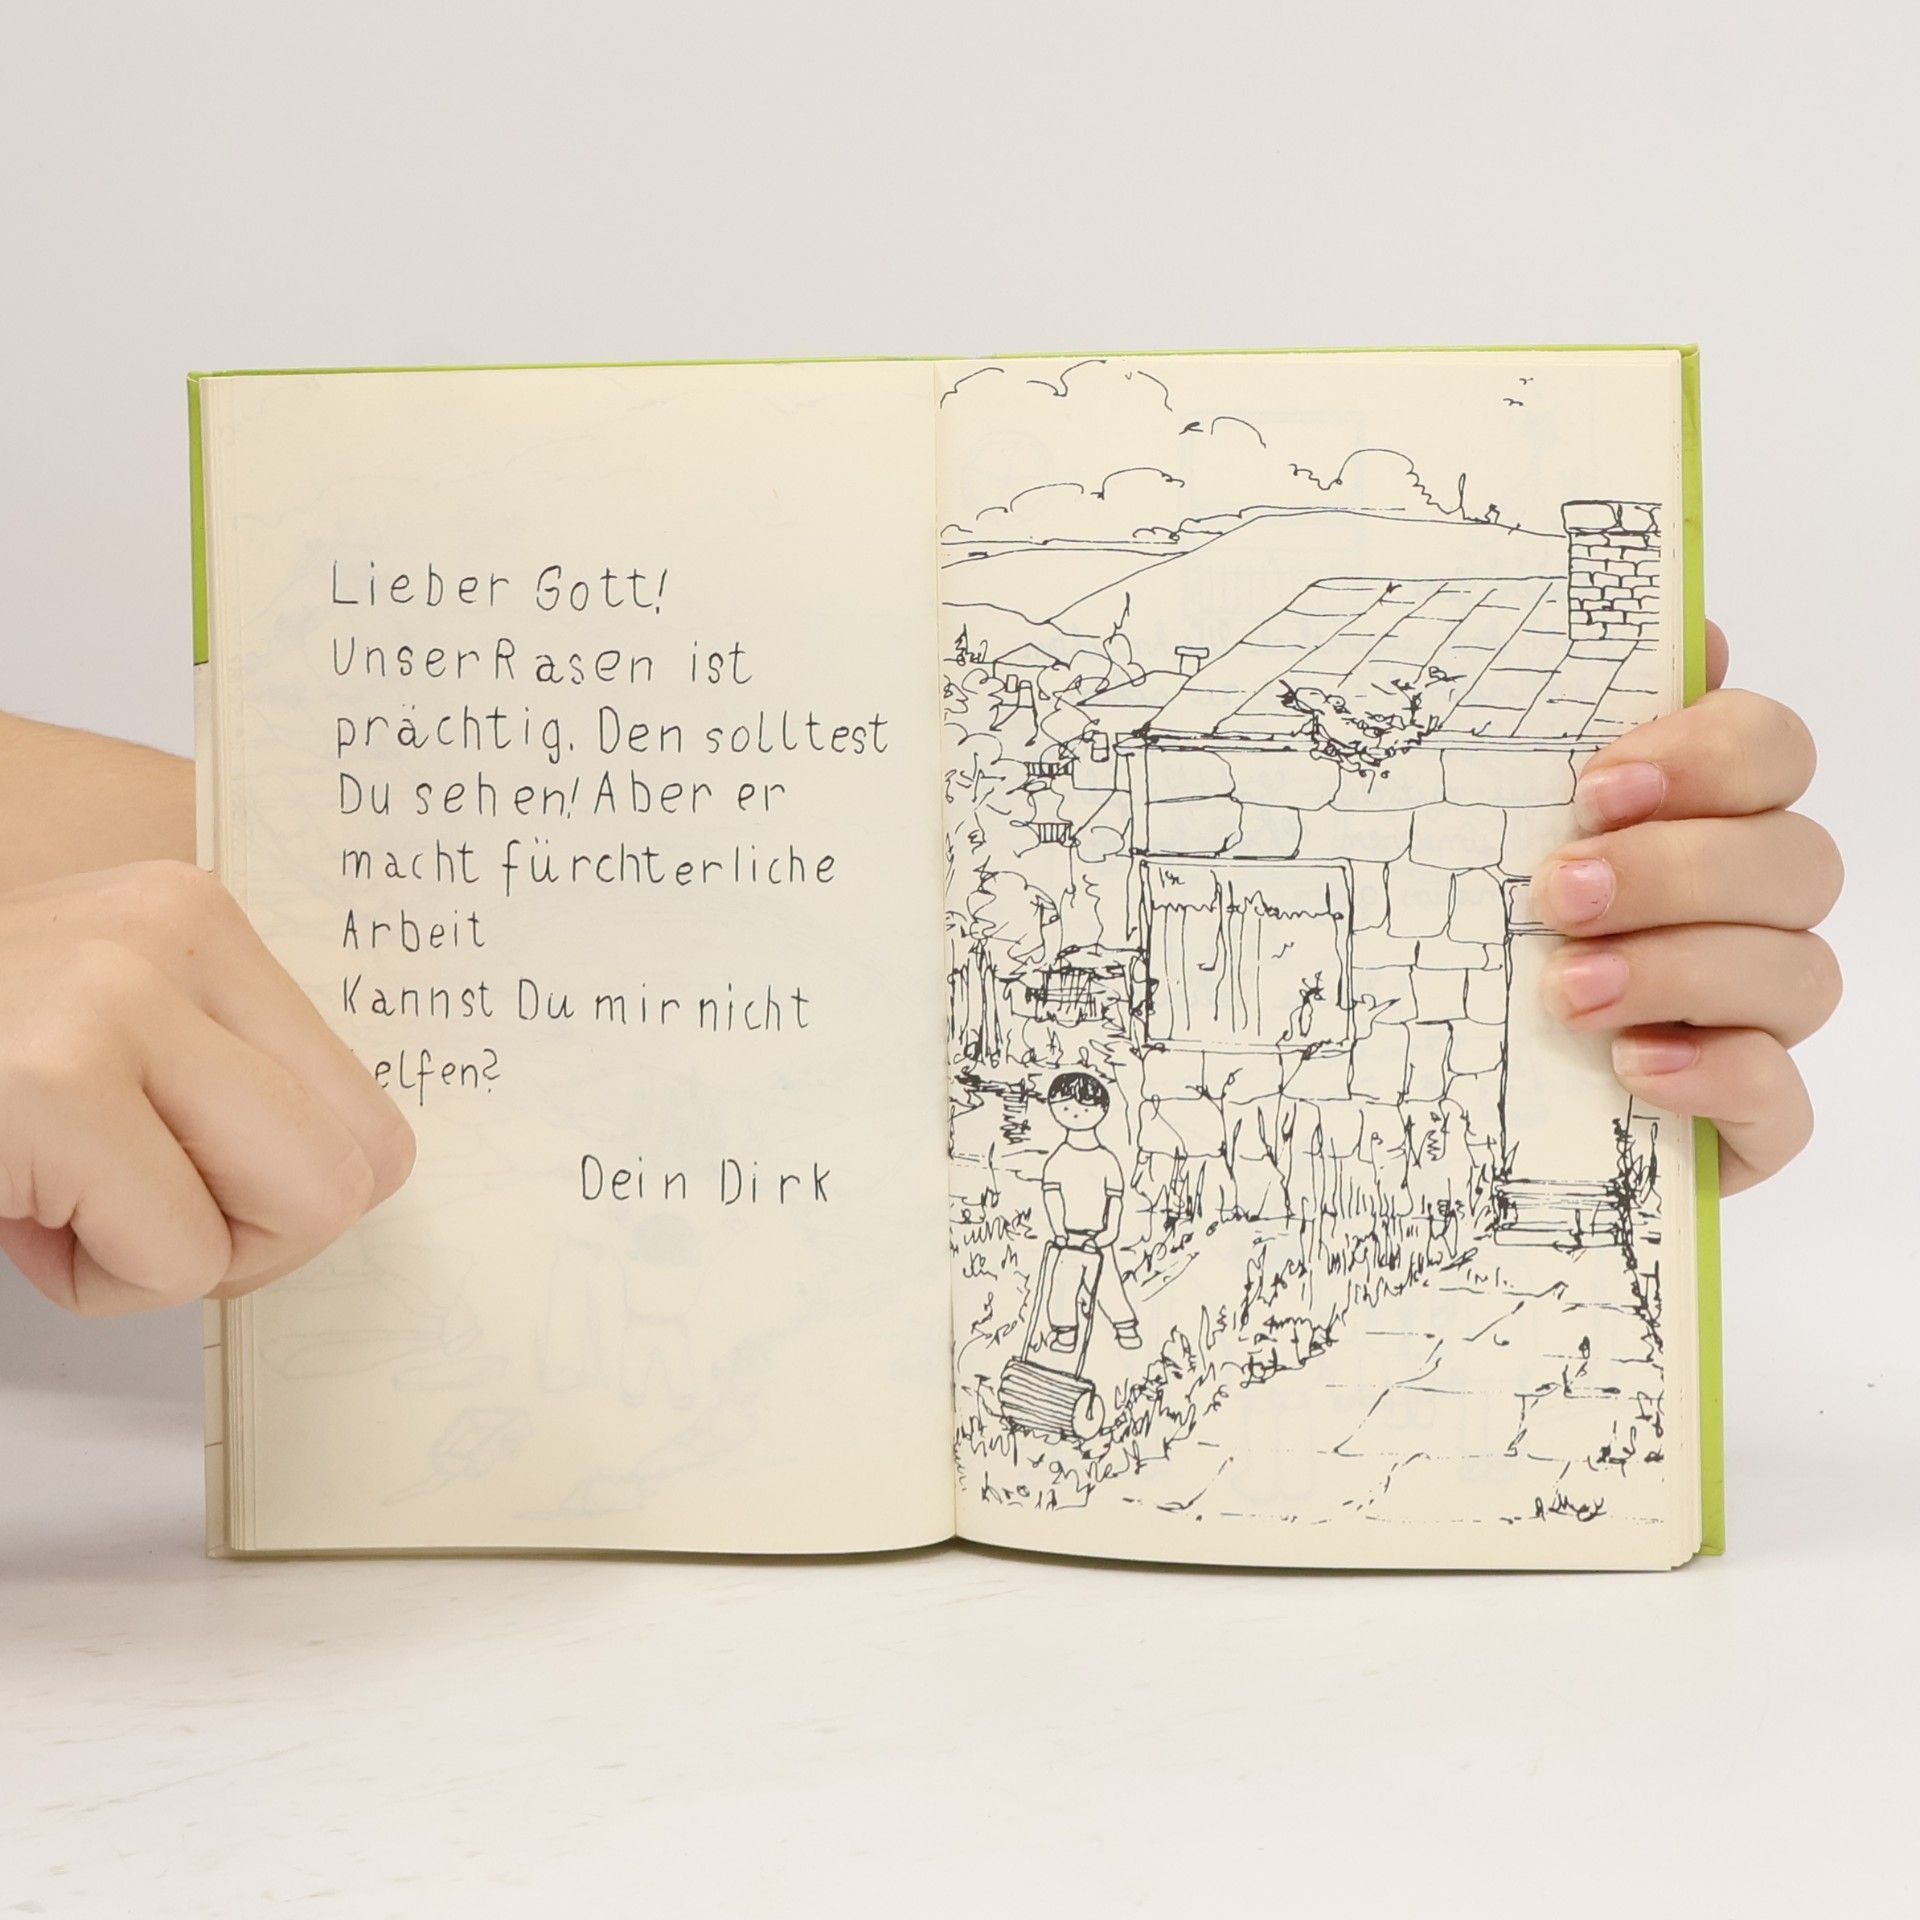 Lieber Gott!
Unser Rasen ist
prächtig. Den solltest
Du sehen! Aber er
macht fürchterliche
Arbeit
Kannst Du mir nicht
elfen?
Dein Dirk